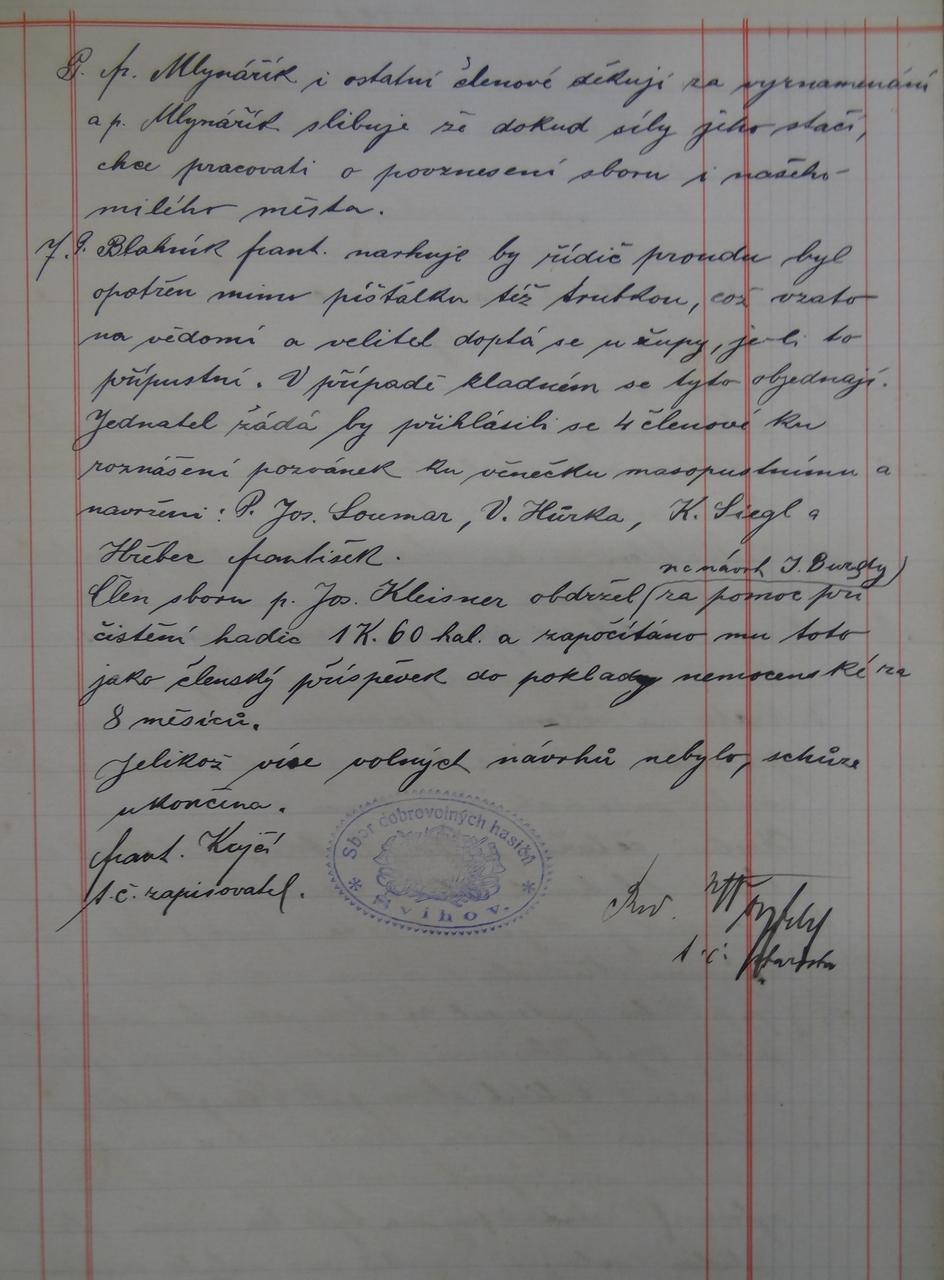 P. fr. Mlynářík i ostatní členové děkují za vyznamenání
a p. Mlynářík slibuje že dokud síly jeho stačí,
chce pracovati o povznesení sboru i našeho
milého města.
7. P. Blahník frant. navrhuje by řídič proudu byl
opatřen mimo píšťalku též trubkou, což vzato
na vědomí a velitel doptá se u župy, je-li to
přípustní. V případě kladném se tyto objednají.
Jednatel žádá by přihlásili se 4 členové ku
roznášení pozvánek ku věnečku masopustnímu a
navrženi: P. Jos. Soumar, V. Hůrka, K. Siegl a
Hříbec František.
na návrh J. Burdy)
Člen sboru p. Jos. Kleisner obdržel (za pomoc při
čistění hadic 1 K. 60 hal. a započítáno mu toto
jako členský příspěvek do poklady nemocenské za
8 měsíců.
Jelikož více volných návrhů nebylo, schůze
ukončena.
frant. Krýčí
t. č. zapisovatel.
Sbor dobrovolných hasičů
* Švihov. *
t. č. starosta